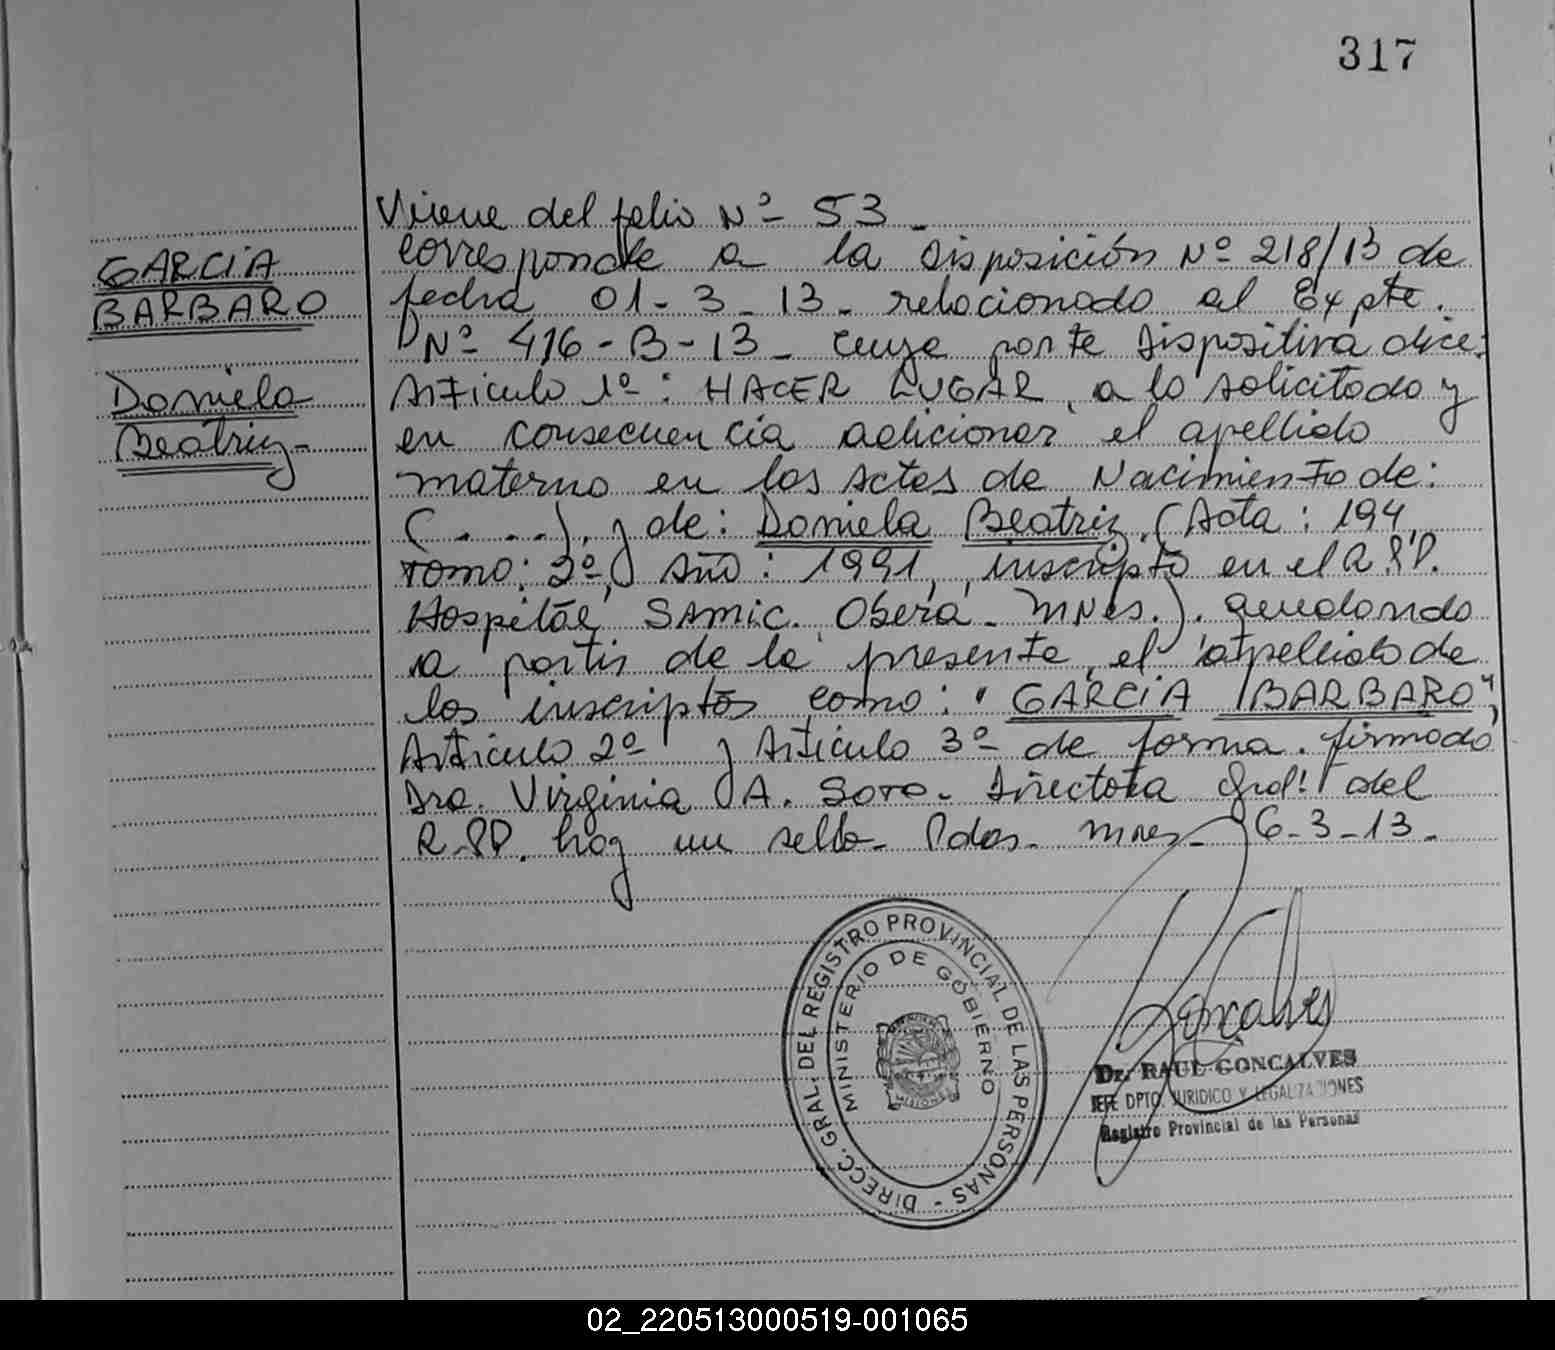 317
Viene del folio Nº 53
GARCIA
BARBARO
Daniela
Beatriz-
corresponde a la Disposición Nº 218/13 de
fecha 01-3-13- relacionado al Expte.
Nº 416-B-13- cuya parte dispositiva dice:
Artículo 1º: HACER LUGAR, a lo solicitado y
en consecuencia adicionar el apellido
materno en las Actas de Nacimiento de:
(. . . .), y de: Daniela Beatriz, (Acta: 194,
Tomo: 2º, Año: 1991, inscripto en el R.P.P.
Hospital SAMIC. Oberá- Mnes.). quedando
a partir de la presente, el apellido de
los inscriptos como: "GARCIA BARBARO",
Artículo 2º y Artículo 3º de forma. firmado
Dra. Virginia A. Soto- Directora Gral. del
R.P.P. hay un sello- Pdas- Mnes- 6-3-13-
DIRECC. GRAL. DEL REGISTRO PROVINCIAL DE LAS PERSONAS -
MINISTERIO DE GOBIERNO
MISIONES
Goncalves
Dr. RAUL GONCALVES
JEFE DPTO. JURIDICO Y LEGALIZACIONES
Registro Provincial de las Personas
02_220513000519-001065